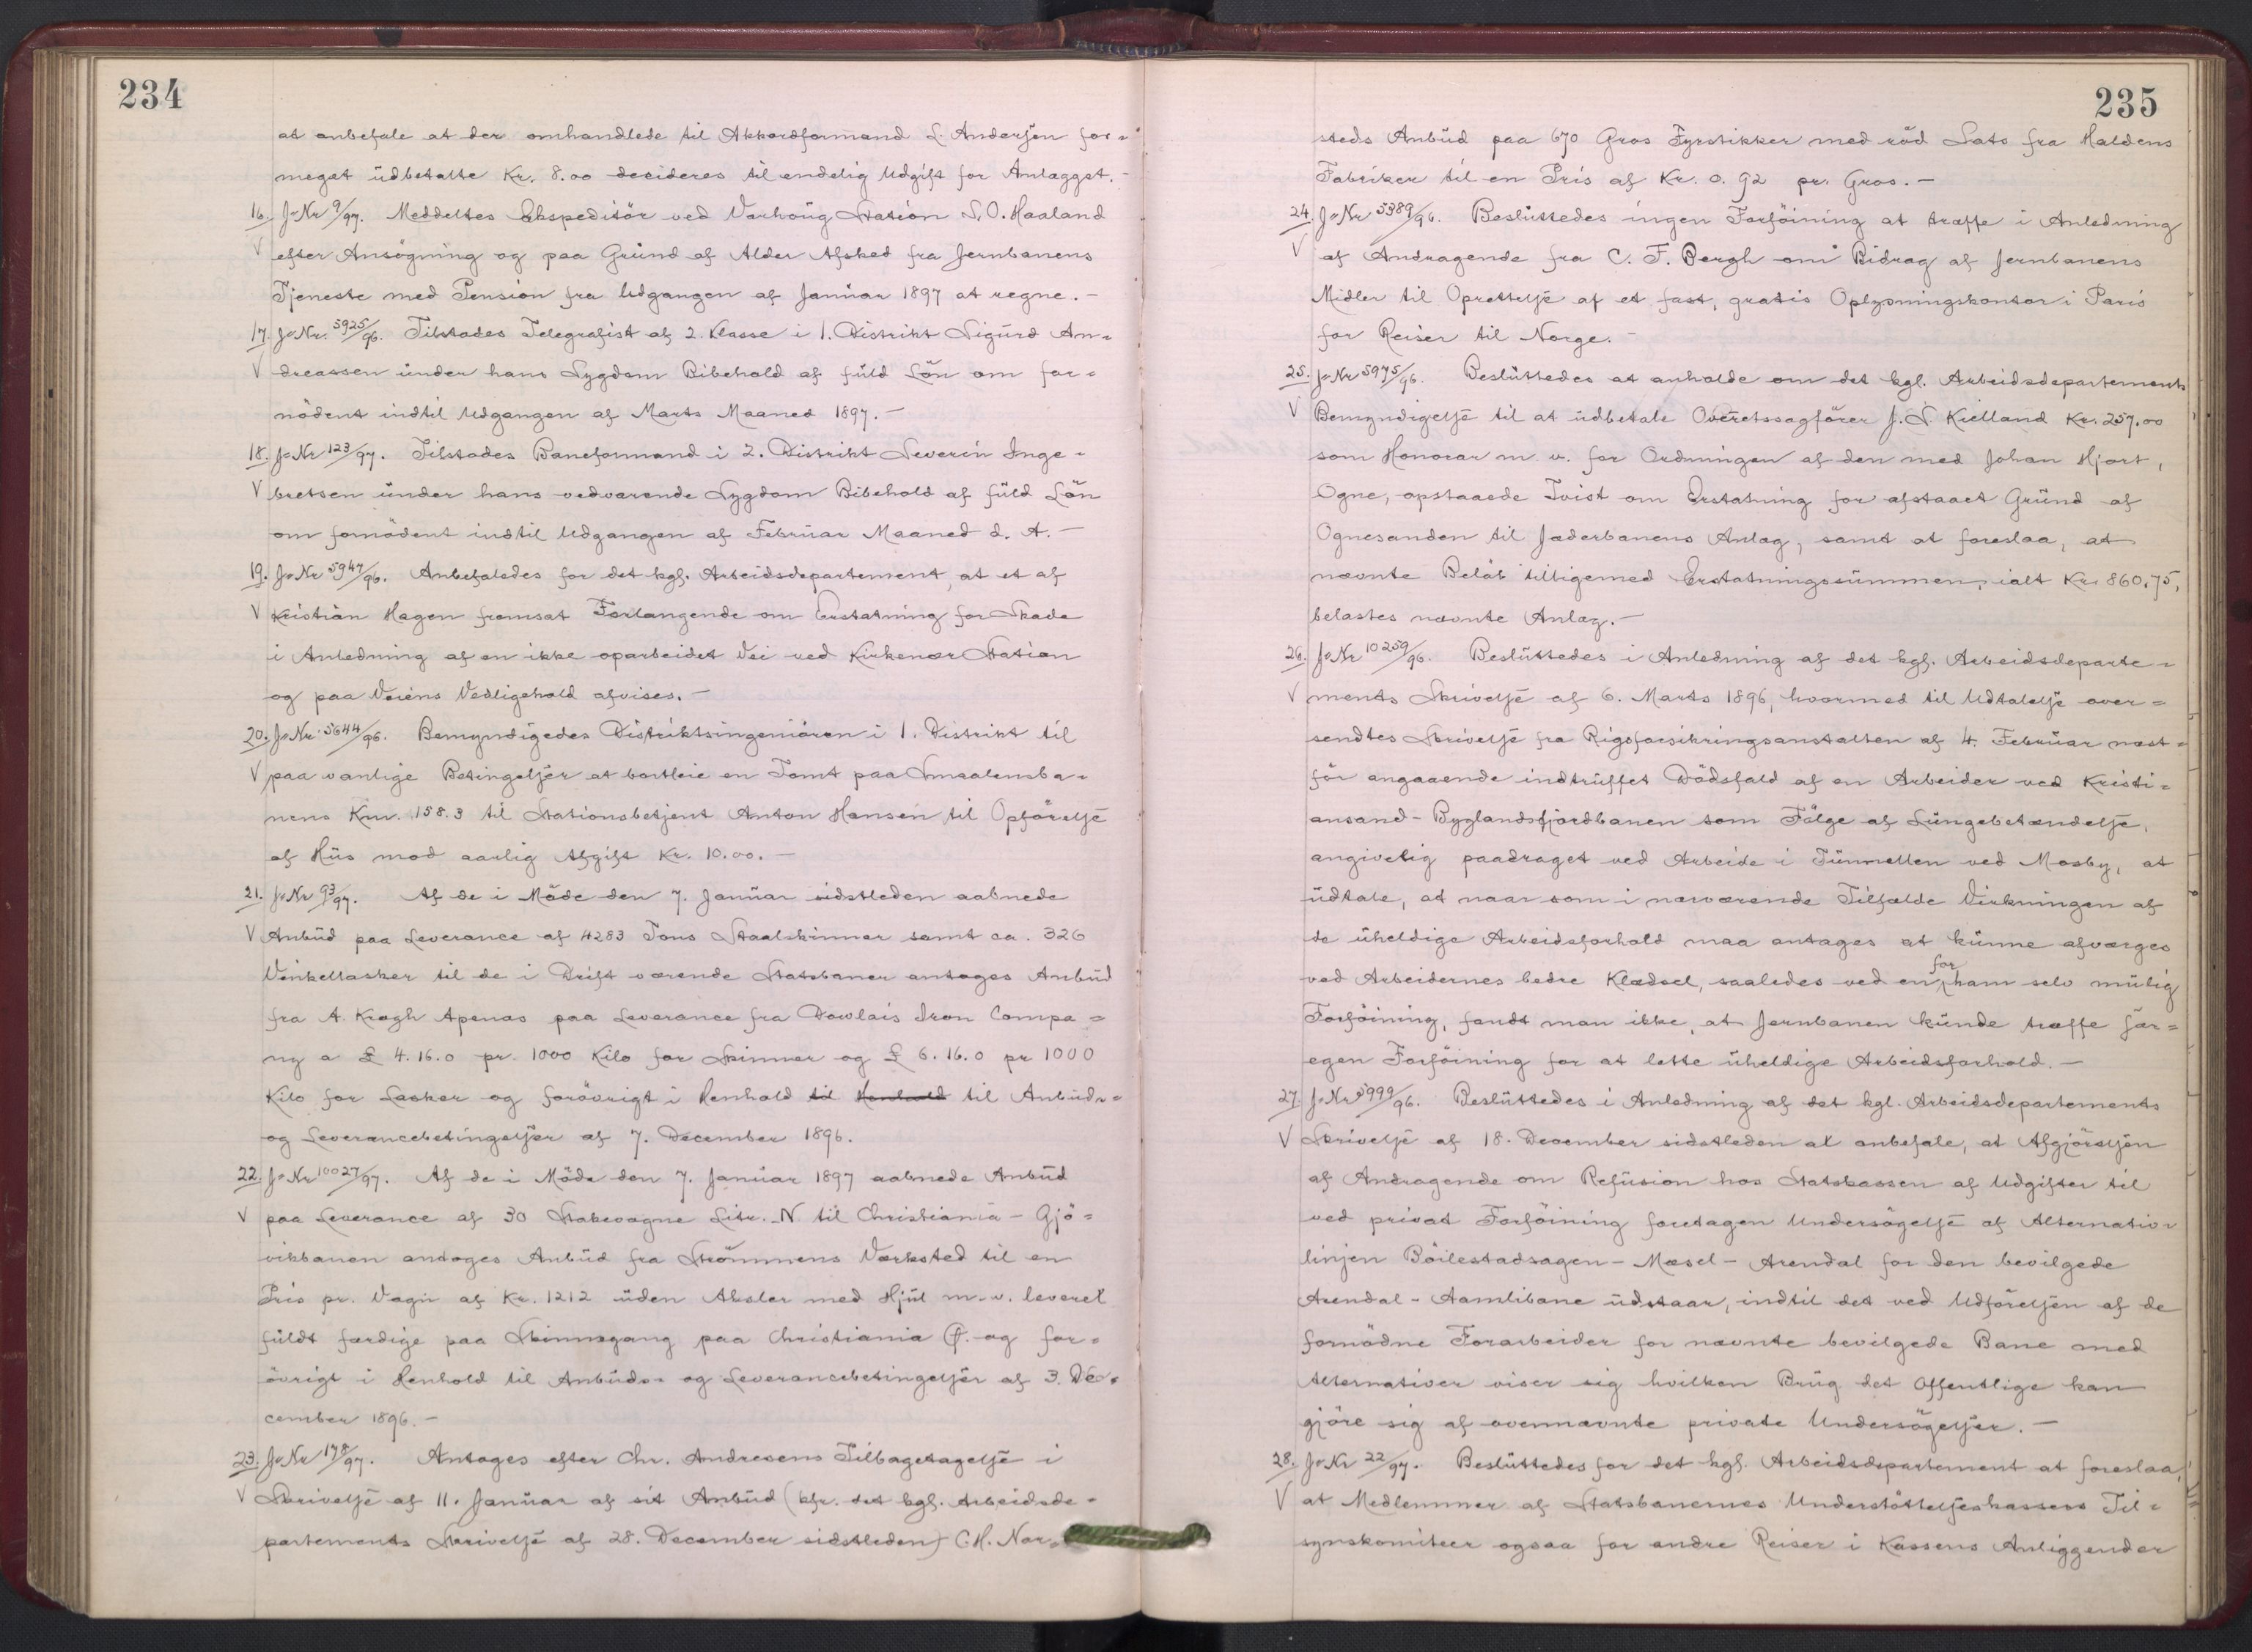 234
at anbefale at der omhandlede til Akkordformand L. Andersen for-
meget udbetalte Kr. 8.00 decideres til endelig Udgift for Anlægget.-
16. J-Nr 9/97. Meddeltes Ekspeditör ved Varhoug Station S. O. Haaland
V efter Ansögning og paa Grund af Alder Afsked fra Jernbanens
Tjeneste med Pension fra Udgangen af Januar 1897 at regne.-
17. J-Nr. 5925/96. Tilstodes Telegrafist af 2. Klasse i 1. Distrikt Sigurd An-
V dreassen under hans Sygdom Bibehold af fuld Lön om for-
nödent indtil Udgangen af Marts Maaned 1897.-
18. J-Nr 123/97. Tilstodes Baneformand i 2. Distrikt Severin Inge-
V bretsen under hans vedvarende Sygdom Bibehold af fuld Lön
om fornödent indtil Udgangen af Februar Maaned d. A.-
19. J-Nr 5947/96. Anbefaledes for det kgl. Arbeidsdepartement, at et af
V Kristian Hagen fremsat Forlangende om Erstatning for Skade
i Anledning af en ikke oparbeidet Vei ved Kirkenær Station
og paa Veiens Vedligehold afvises.-
20. J-Nr 5644/96. Bemyndigedes Distriktsingeniören i 1. Distrikt til
V paa vanlige Betingelser at bortleie en Tomt paa Smaalensba-
nens Km. 158.3 til Stationsbetjent Anton Hansen til Opförelse
af Hus mod aarlig Afgift Kr. 10.00.-
21. J-Nr 93/97. Af de i Möde den 7. Januar sidstleden aabnede
V Anbud paa Leverance af 4283 Tons Staalskinner samt ca. 326
Vinkellasker til de i Drift værende Statsbaner antoges Anbud
fra A. Kragh Apenas paa Leverance fra Dowlais Iron Compa-
ny a £ 4.16.0 pr. 1000 Kilo for Skinner og £ 6.16.0 pr 1000
Kilo for Lasker og forövrigt i Henhold til Henhold til Anbuds-
og Leverancebetingelser af 7. December 1896.
22. J-Nr 10027/97. Af de i Möde den 7. Januar 1897 aabnede Anbud
V paa Leverance af 30 Stakevogne Litr. N til Christiania - Gjö-
vikbanen antoges Anbud fra Strömmens Værksted til en
Pris pr. Vogn af Kr. 1212 uden Aksler med Hjul m.v. leveret
fuldt færdige paa Skinnegang paa Christiania Ø. og for-
övrigt i Henhold til Anbuds- og Leverancebetingelser af 3. De-
cember 1896.-
23. J-Nr 178/97. Antoges efter Chr. Andresens Tilbagetagelse i
V Skrivelse af 11. Januar af sit Anbud (kfr. det kgl. Arbeidsde-
partements Skrivelse af 28. December sidstleden) C. H. Nor-
235
steds Anbud paa 670 Gros Fyrstikker med röd Sats fra Haldens
Fabriker til en Pris af Kr. 0.92 pr. Gros.-
24. J-Nr 5389/96. Besluttedes ingen Forföining at træffe i Anledning
V af Andragende fra C. F. Bergh om Bidrag af Jernbanens
Midler til Oprettelse af et fast, gratis Oplysningskontor i Paris
for Reiser til Norge.-
25. J-Nr 5975/96. Besluttedes at anholde om det kgl. Arbeidsdepartements
V Bemyndigelse til at udbetale Overetssagförer J. S. Kielland Kr. 257.00
som Honorar m. v. for Ordningen af den med Johan Hjort,
Ogne, opstaaede Tvist om Erstatning for afstaaet Grund af
Ognesanden til Jæderbanens Anlæg, samt at foreslaa, at
nævnte Belöb tilligemed Erstatningssummen, ialt Kr. 860.75,
belastes nævnte Anlæg.-
26. J-Nr 10259/96. Besluttedes i Anledning af det kgl. Arbeidsdeparte-
V ments Skrivelse af 6. Marts 1896, hvormed til Udtalelse over-
sendtes Skrivelse fra Rigsforsikringsanstalten af 4. Februar næst-
för angaaende indtruffet Dödsfald af en Arbeider ved Kristi-
ansand-Byglandsfjordbanen som Fölge af Lungebetændelse,
angivelig paadraget ved Arbeide i Tunnellen ved Mosby, at
udtale, at naar som i nærværende Tilfælde Virkningen af
de uheldige Arbeidsforhold maa antages at kunne afværges
ved Arbeidernes bedre Klædsel, saaledes ved en for ham selv mulig
Forföining, fandt man ikke, at Jernbanen kunde træffe sær-
egen Forföining for at lette uheldige Arbeidsforhold.-
27. J-Nr 5999/96. Besluttedes i Anledning af det kgl. Arbeidsdepartements
V Skrivelse af 18. December sidstleden at anbefale, at Afgjörelsen
af Andragende om Refusion hos Statskassen af Udgifter til
ved privat Forföining foretagen Undersögelse af Alternativ-
linjen Böilestadsagen - Mæsel - Arendal for den bevilgede
Arendal - Aamlibane udstaar, indtil det ved Udförelsen af de
fornödne Forarbeider for nævnte bevilgede Bane med
Alternativer viser sig hvilken Brug det Offentlige kan
gjöre sig af ovennævnte private Undersögelser.-
28. J-Nr 22/97. Besluttedes for det kgl. Arbeidsdepartement at foreslaa,
V at Medlemmer af Statsbanernes Understöttelseskassers Til-
synskomiteer ogsaa for andre Reiser i Kassens Anliggender